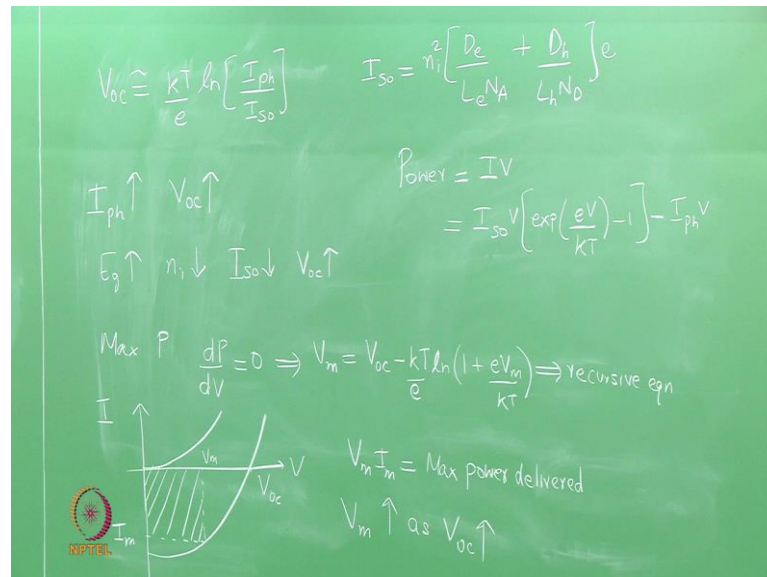 V_oc ≅ kT/e ln[I_ph/I_so]
I_so = n_i^2[D_e/(L_e N_A) + D_h/(L_h N_D)]e
I_ph↑ V_oc↑
Power = IV
= I_so V[exp(eV/kT)-1] - I_ph V
E_g↑ n_i↓ I_so↓ V_oc↑
Max P dP/dV = 0 ⇒ V_m = V_oc - kT/e ln(1 + eV_m/kT) ⇒ recursive eqn
I
V_m
V
V_oc
I_m
V_m I_m = Max power delivered
V_m ↑ as V_oc ↑
NPTEL